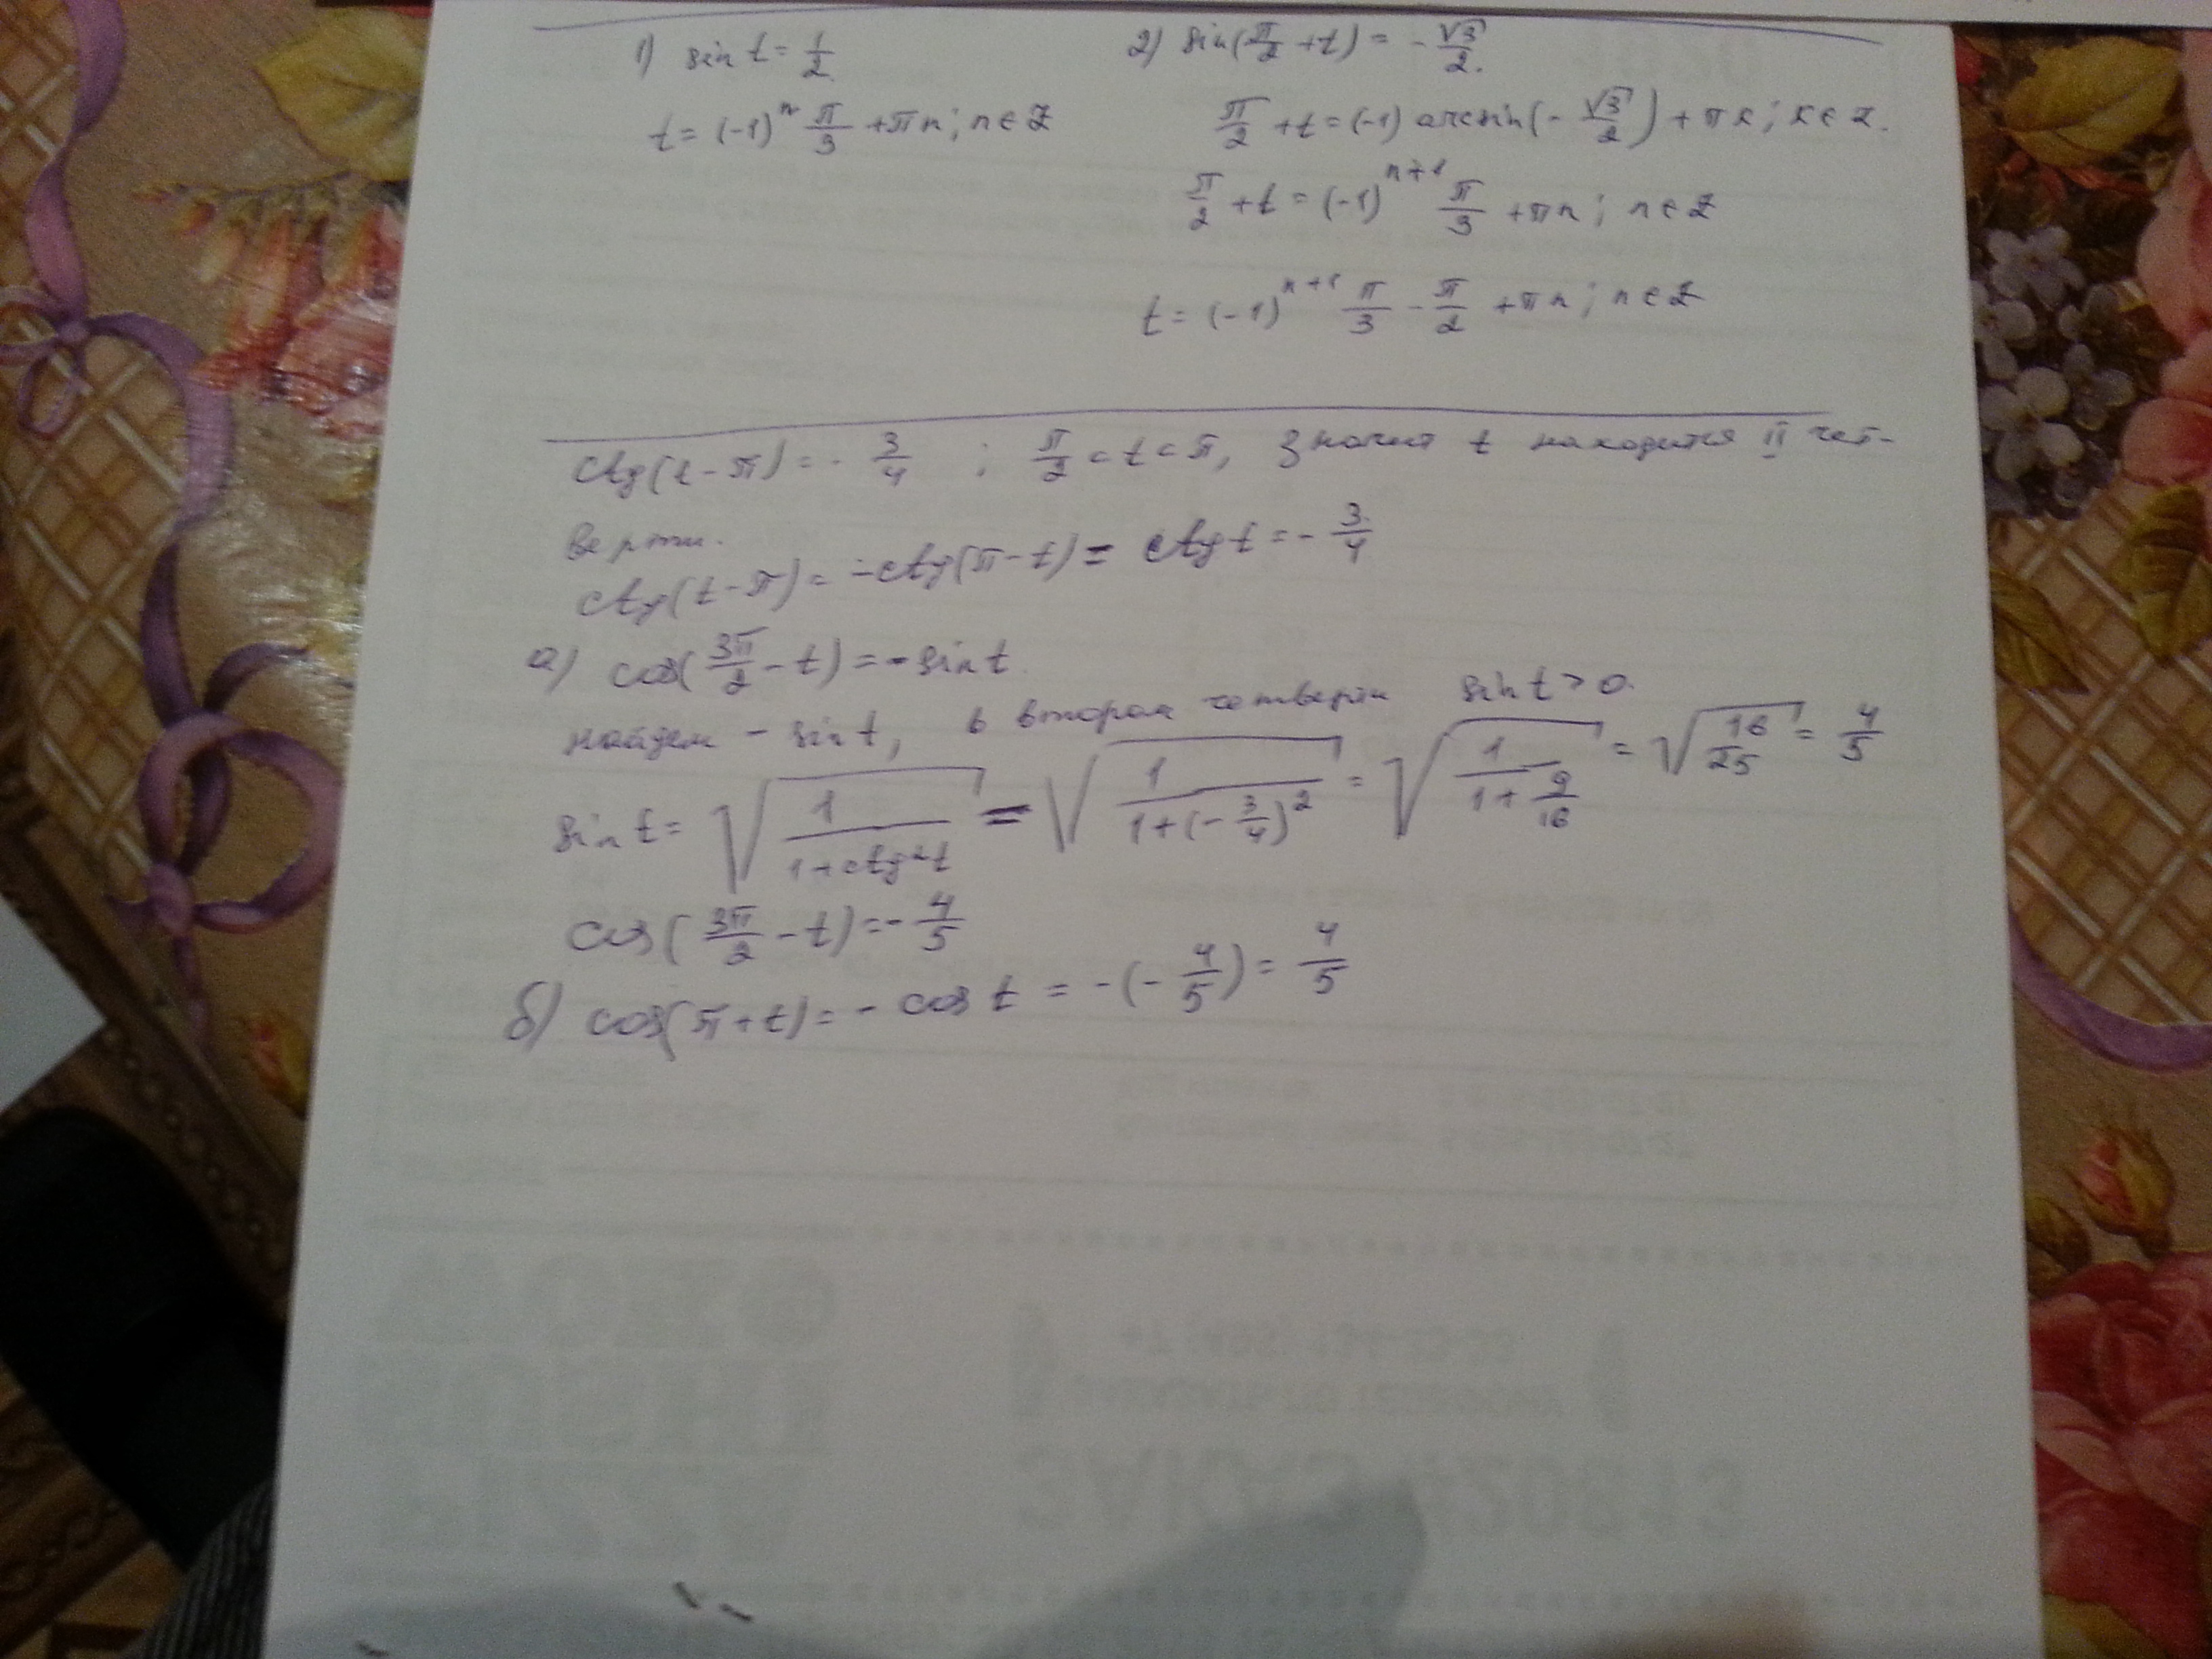 1) sin t = 1/2
t = (-1)^n π/3 + πn; n ∈ Z
2) sin(π/2 + t) = - √3/2.
π/2 + t = (-1) arcsin(- √3/2) + πk; k ∈ Z.
π/2 + t = (-1)^(n+1) π/3 + πn; n ∈ Z
t = (-1)^(n+1) π/3 - π/2 + πn; n ∈ Z
ctg(t - π) = - 3/4 ; π/2 < t < π, Значит t находится II чет-
верти.
ctg(t - π) = -ctg(π - t) = ctg t = - 3/4
а) cos(3π/2 - t) = -sin t
найдем - sin t, в втором четверти sin t > 0.
sin t = √(1/(1 + ctg²t)) = √(1/(1 + (- 3/4)²)) = √(1/(1 + 9/16)) = √(16/25) = 4/5
cos(3π/2 - t) = - 4/5
б) cos(π + t) = - cos t = -(- 4/5) = 4/5